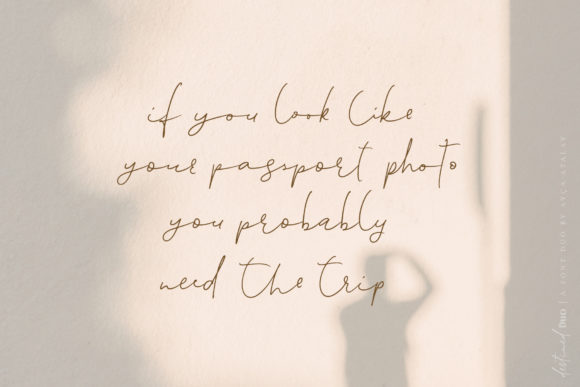 if you look like
your passport photo
you probably
need the trip
destined DUO | A FONT DUO BY AYCA ATALAY